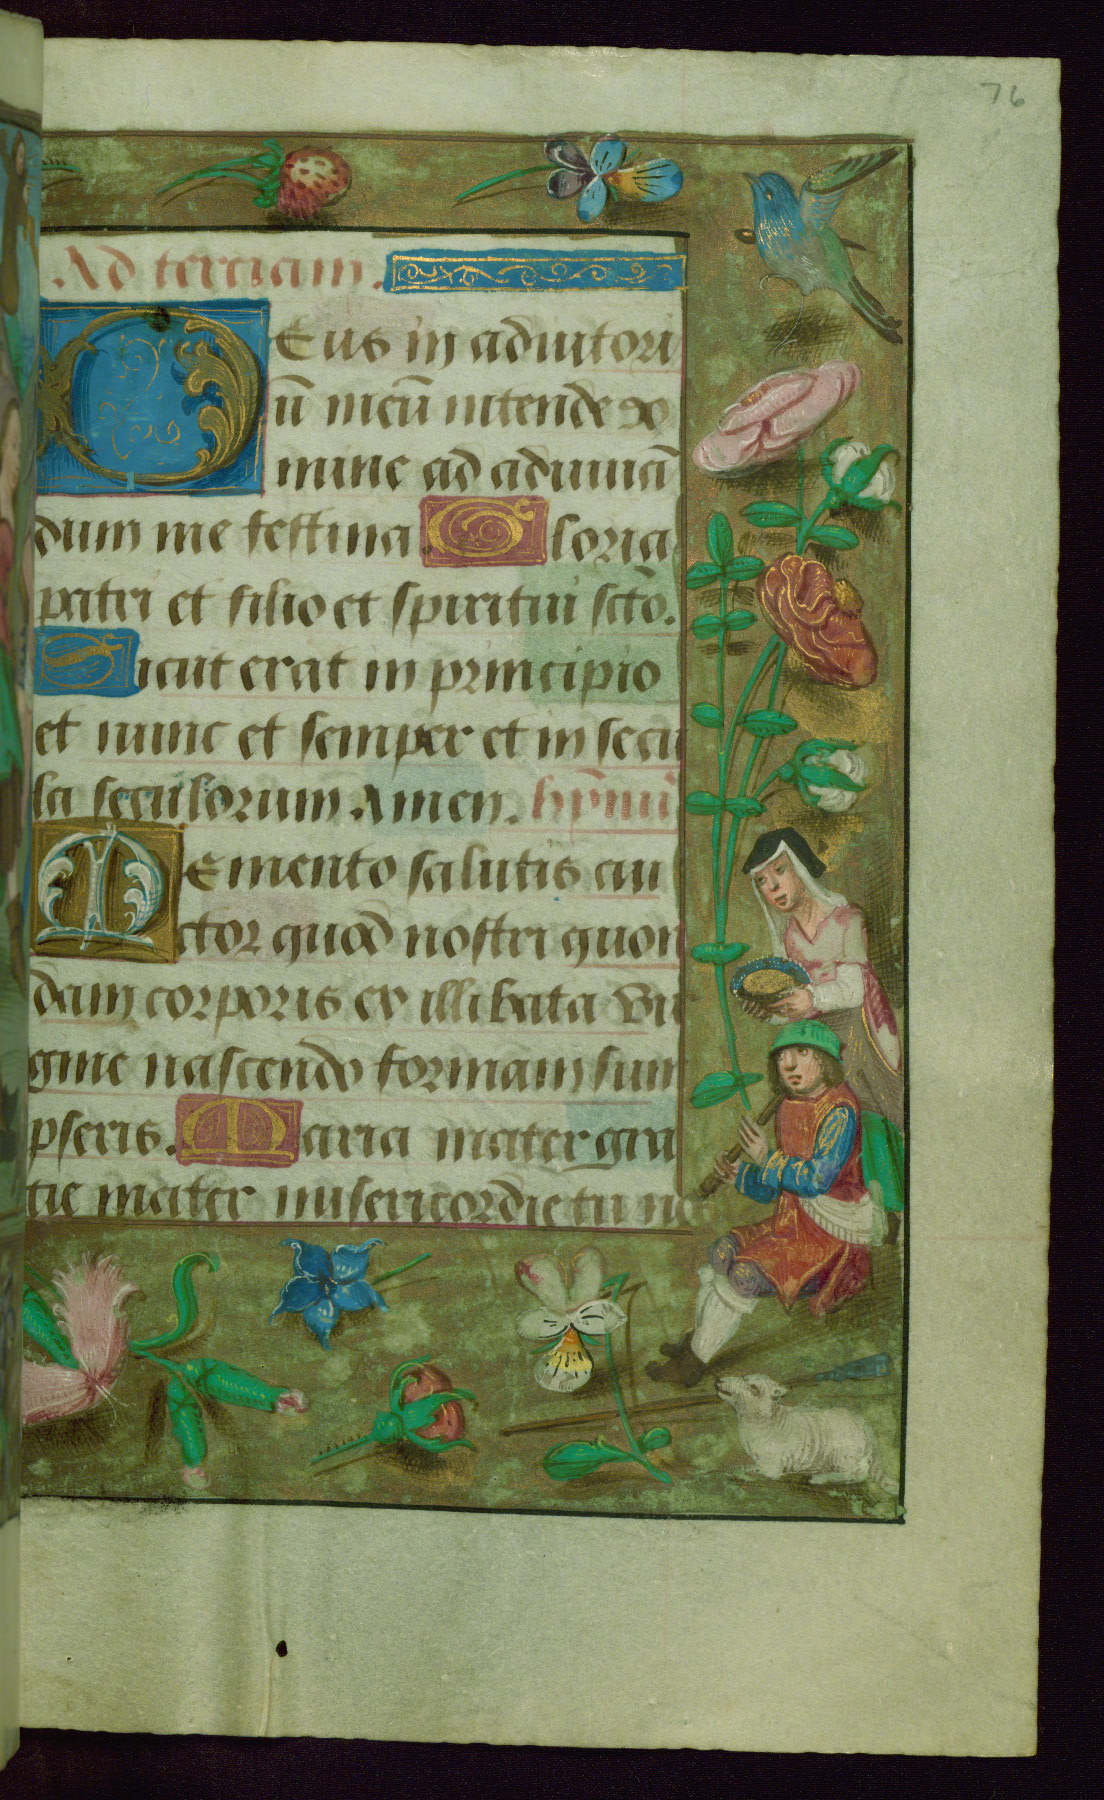 76
Ad terciam.
Deus in adiutori
ū meū intende do
mine ad adiuuā
dum me festina Gloria
patri et filio et spiritui sctō.
Sicut erat in principio
et nunc et semper et in secu
la seculorum. Amen. hymnꝰ
Memento salutis au
ctor quod nostri quon
dam corporis ex illibata vir
gine nascendo formam sum
pseris. Maria mater gra
tie mater misericordie tu nos